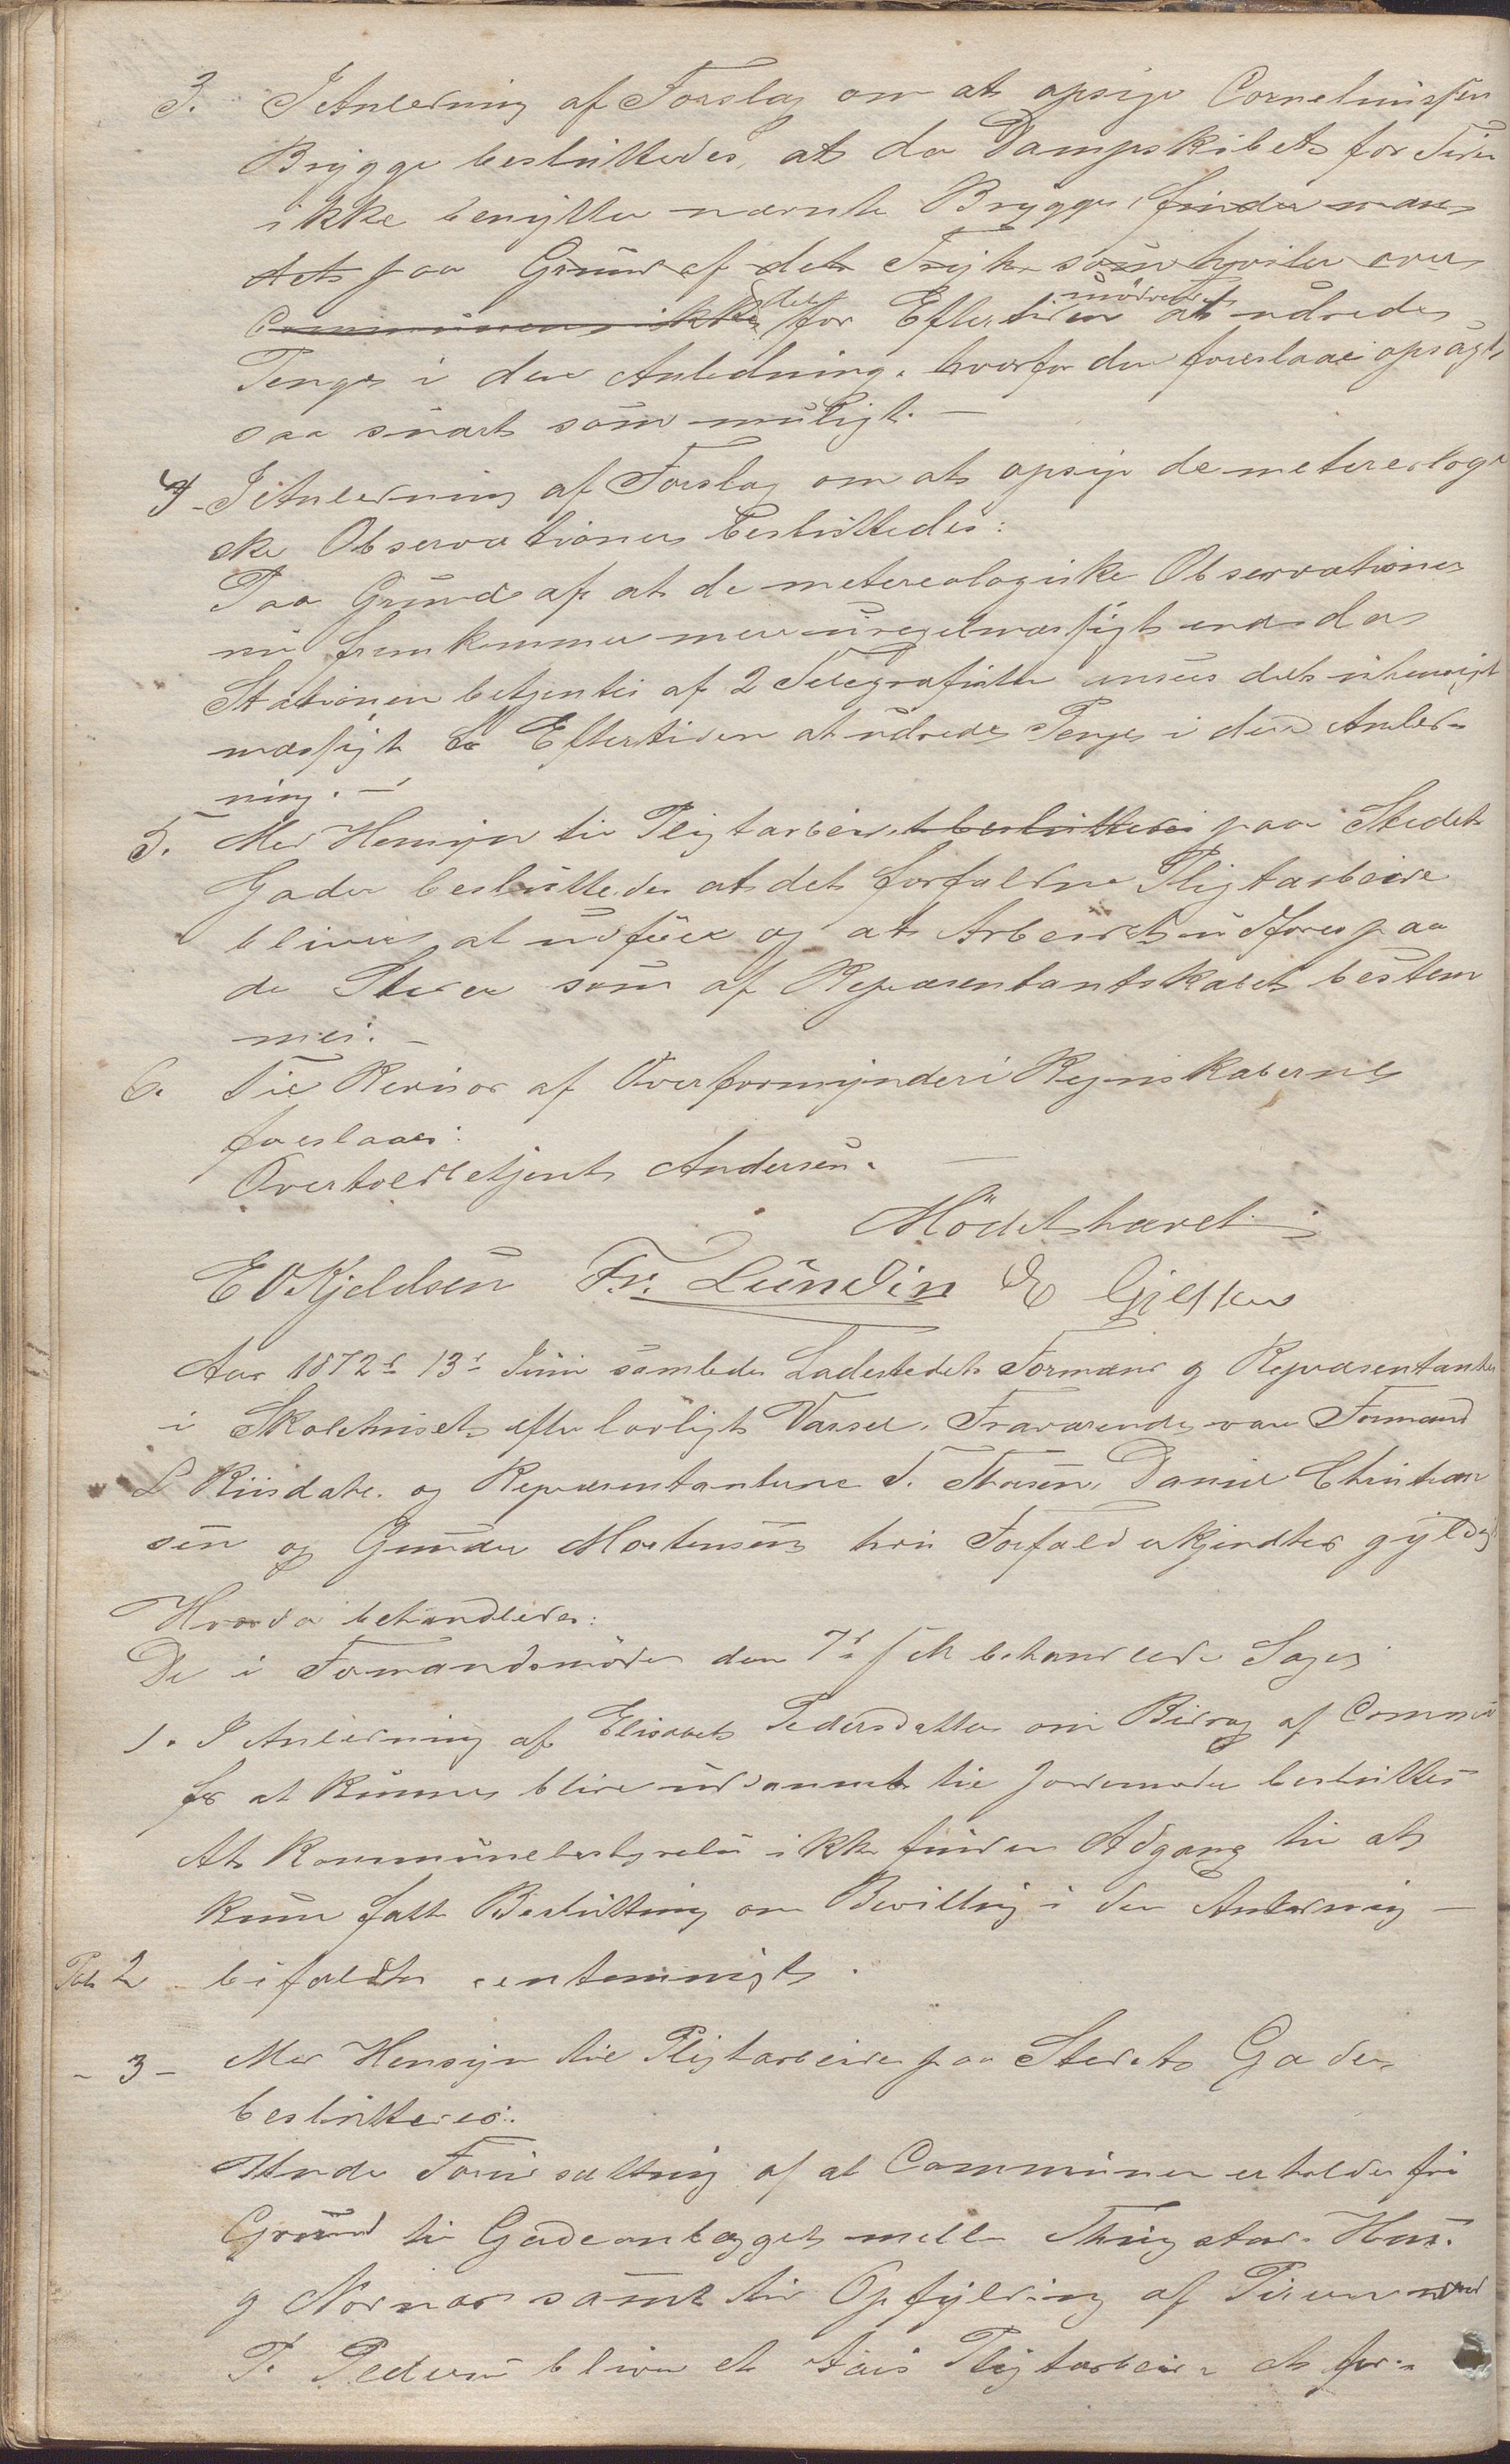 3. I Anledning af Forslag om at opsige Corneliussen
Brygge besluttedes, at da Dampskibet for Tiden
ikke benytter nævnte Brygge, finder man
det paa Grund af det Tryk som hviler over
Communen ikke det for Eftertiden at udrede
Penge i den Anledning, hvorfor den foreslaaes opsagt
saa snart som muligt. —
4 - I Anledning af Forslag om at opsige de metereologi
ske Observationer besluttedes:
Paa Grund af at de metereologiske Observationer
nu fremkommer mere uregelmæssigt end da
Stationen betjentes af 2 Telegrafister ansees det uhensigts
mæssigt for Eftertiden at udrede Penge i den Anled-
ning. —
5. Med Hensyn til Pligtarbeidet besluttedes paa Stedets
Gader besluttedes at det forfaldne Pligtarbeide
bliver at udføre og at Arbeidet udføres paa
de Steder som af Repræsentantskabet bestem
mes. —
6. Til Revisor af Overformynderi Regnskaberne
foreslaaes:
Overtoldbetjent Andersen. —
Mødet hævet
E O Kjeldsen Fr. Lundin
Aar 1872 d. 13d Juni samledes Ladestedets Formænd og Repræsentanter
i Skolehuset efter lovligt Varsel. Fraværende vare Formand
L Riisdahl. og Repræsentanterne T. Thorsen, Daniel Christian
sen og Gunder Mortensen hvis Forfald erkjendtes gyldig
Hvorda behandledes:
De i Formandsmøde den 7d d M behandlede Sager
1. I Anledning af Elisabet Pedersdatter om Bidrag af Commun
for at kunne blive uddannet til Jordemoder besluttes
At Kommunebestyrelsen ikke finder Adgang til at
kunne fatte Beslutning om Bevilling i den Anledning —
Post 2 bifaldtes eenstemmigt.
- 3 - Med Hensyn til Pligtarbeide paa Stedets Gader
besluttedes:
Under Forudsætning af at Communen erholder fri
Grund til Gadeanlægget mellem Thing stad. Hus.
og Nornæs samt til Opfyldning af Pieren ved
P. Pedersen bliver et Aars Pligtarbeide at for-